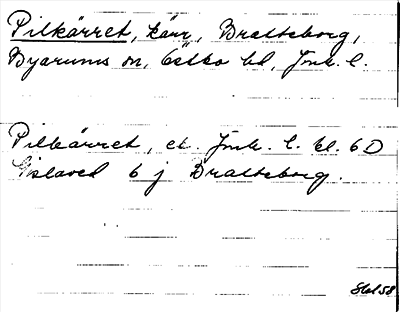 Pilkärret, kärr, Bratteborg,
Byarums sn, Östbo hd, Jönk. l.
Pilkärret, ek. Jönk. l. bl. 6D
Gislaved 6 j Bratteborg.